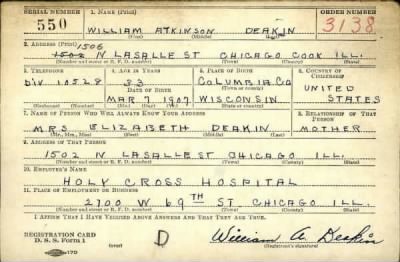 SERIAL NUMBER 1. NAME (Print) ORDER NUMBER
550 WILLIAM ATKINSON DEAKIN 3138
(First) (Middle) (Last)
2. ADDRESS (Print)
1506
1502 N LASALLE ST CHICAGO COOK ILL.
(Number and street or R. F. D. number) (Town) (County) (State)
3. TELEPHONE 4. AGE IN YEARS 5. PLACE OF BIRTH 6. COUNTRY OF CITIZENSHIP
DIV 10528 33 COLUMBIA CO UNITED
DATE OF BIRTH (Town or county)
MAR 7 1907 WISCONSIN STATES
(Exchange) (Number) (Mo.) (Day) (Yr.) (State or country)
7. NAME OF PERSON WHO WILL ALWAYS KNOW YOUR ADDRESS 8. RELATIONSHIP OF THAT PERSON
MRS ELIZABETH DEAKIN MOTHER
(Mr., Mrs., Miss) (First) (Middle) (Last)
9. ADDRESS OF THAT PERSON
1502 N LASALLE ST CHICAGO ILL.
(Number and street or R. F. D. number) (Town) (County) (State)
10. EMPLOYER'S NAME
HOLY CROSS HOSPITAL
11. PLACE OF EMPLOYMENT OR BUSINESS
2700 W 69TH ST CHICAGO ILL.
(Number and street or R. F. D. number) (Town) (County) (State)
I AFFIRM THAT I HAVE VERIFIED ABOVE ANSWERS AND THAT THEY ARE TRUE.
REGISTRATION CARD
D. S. S. Form 1 D William A. Deakin
(Registrant's signature)